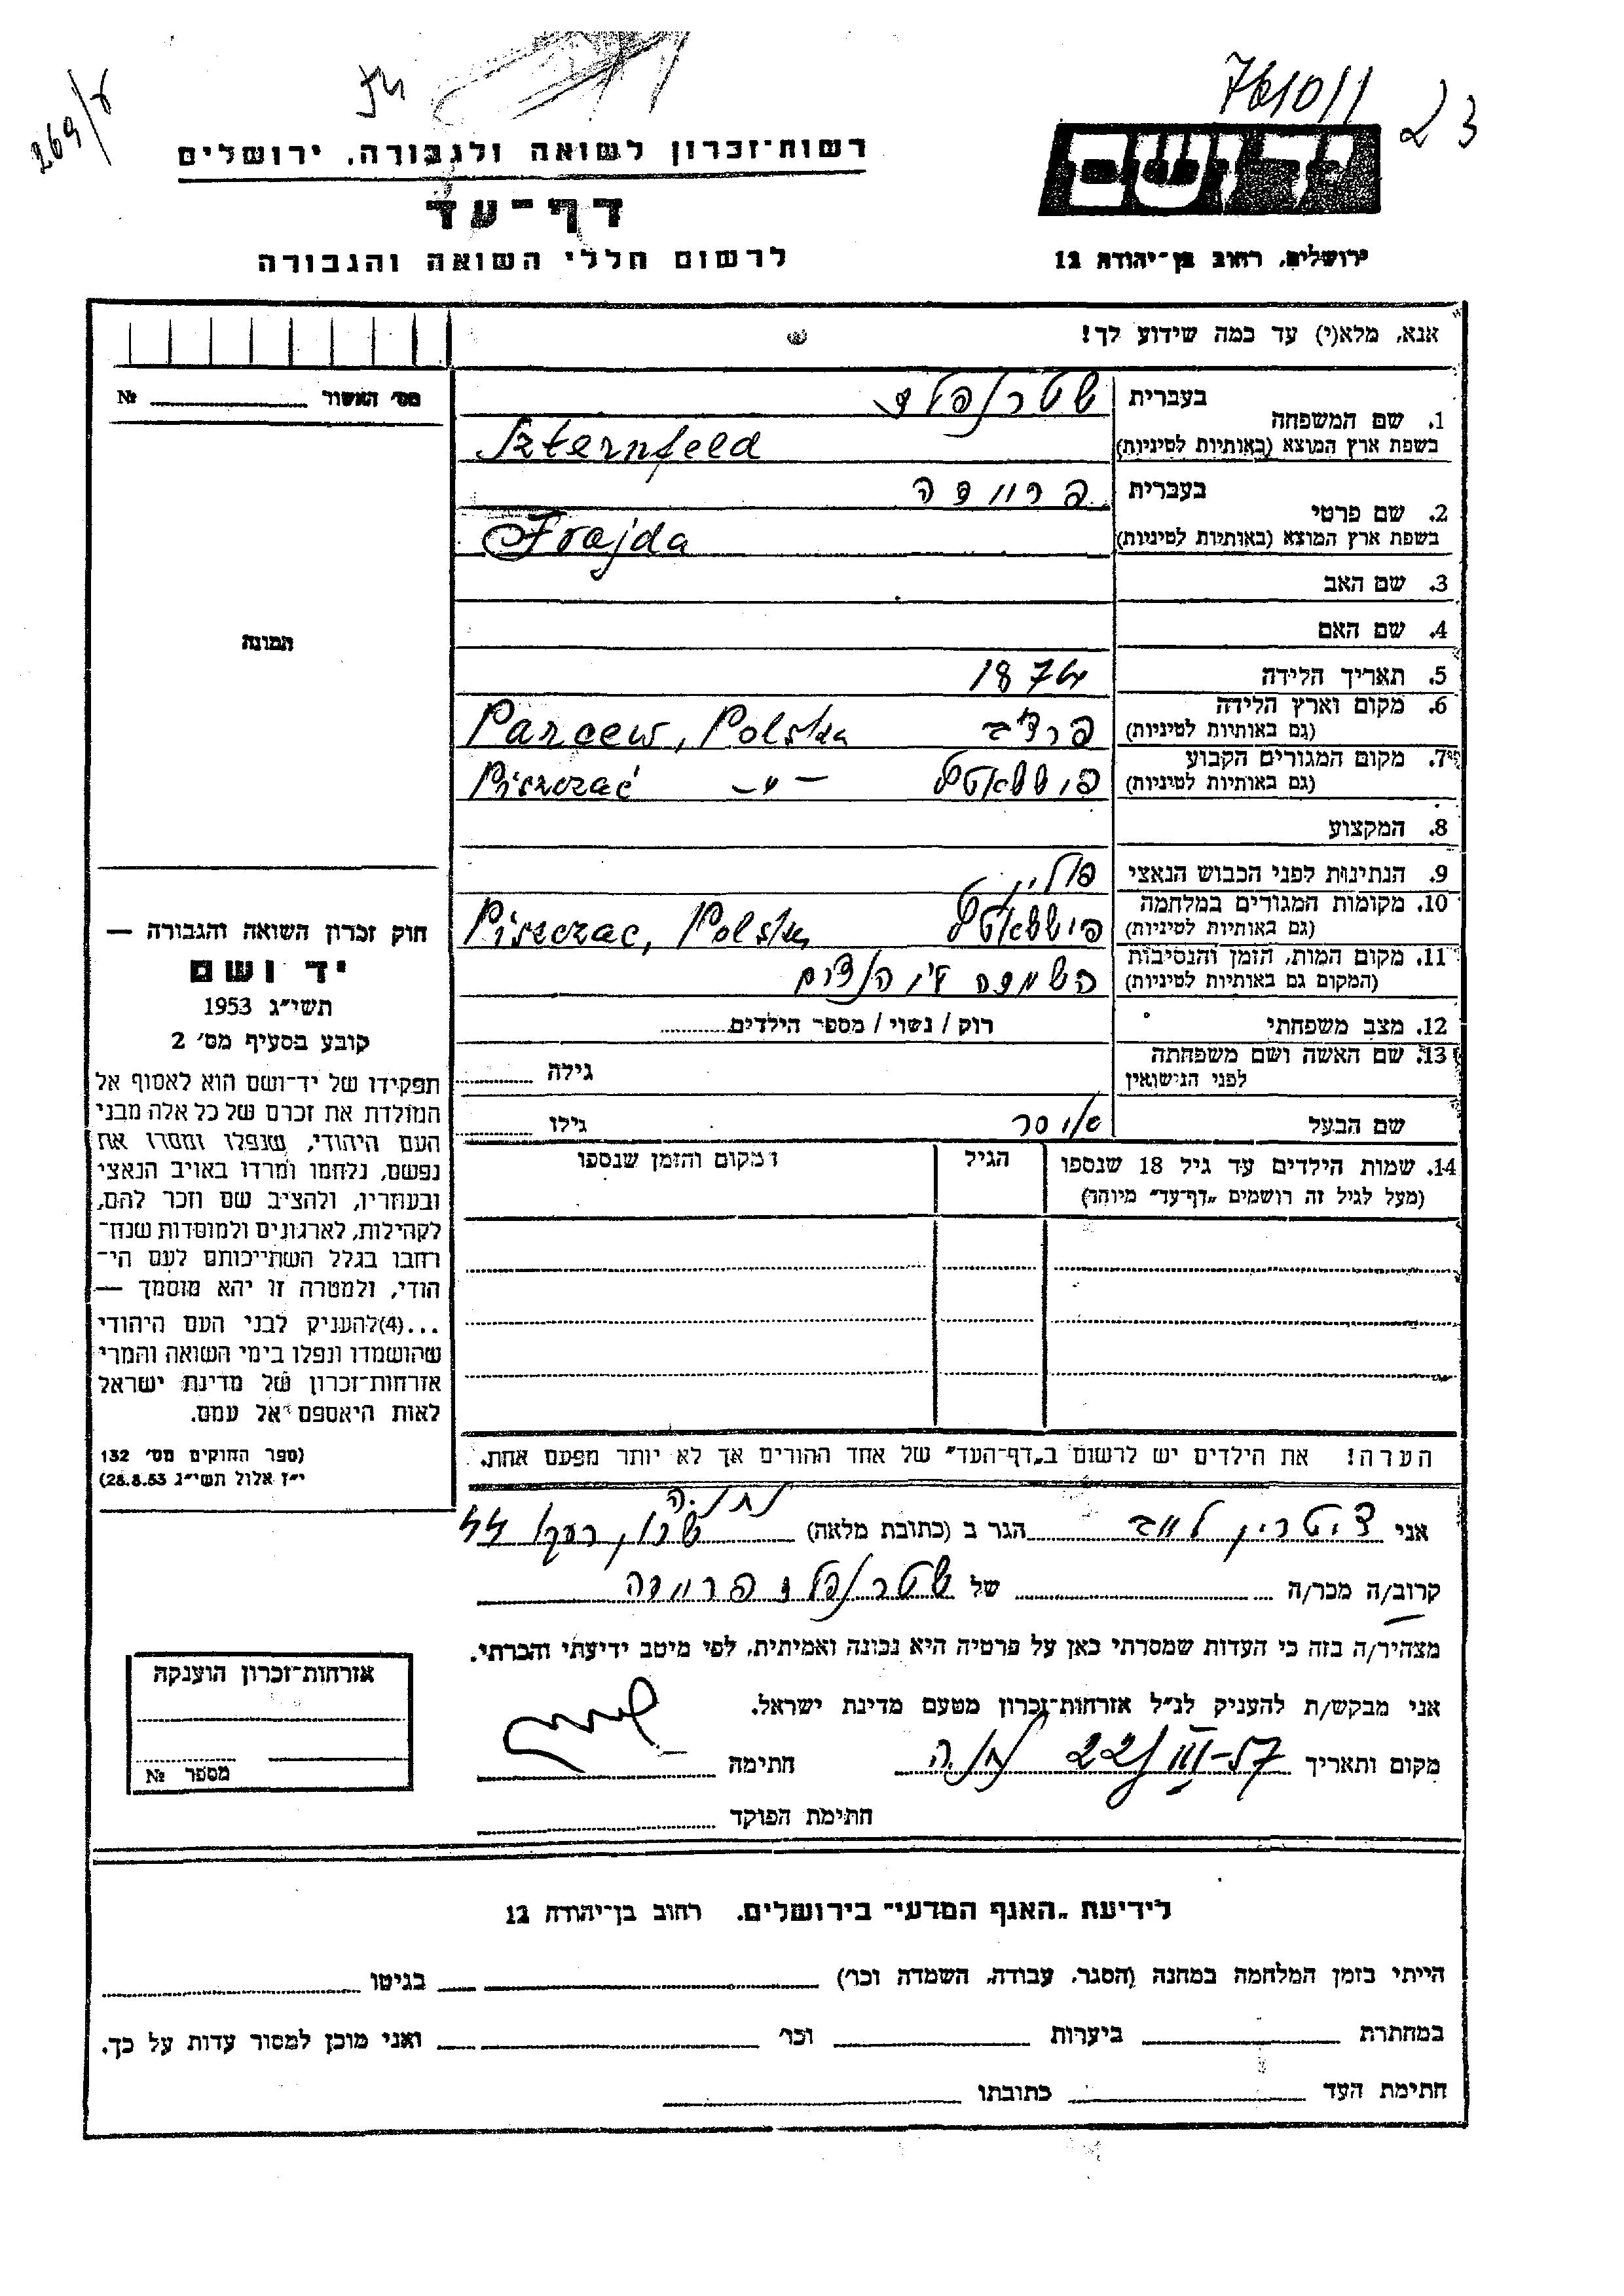 269/ץ
761011
23
רשות־זכרון לשואה ולגבורה, ירושלים
ידושם
דף־עד
לרשום חללי השואה והגבורה
ירושלים, רחוב בן־יהודה 12
אנא, מלא(י) עד כמה שידוע לך!
מס׳ האשור № 
1. שם המשפחה בעברית שטרנפלד
בשפת ארץ המוצא (באותיות לטיניות) Szternfeld
2. שם פרטי בעברית פריידה
בשפת ארץ המוצא (באותיות לטיניות) Frajda
3. שם האב
4. שם האם
תמונה
5. תאריך הלידה 1874
6. מקום וארץ הלידה
(גם באותיות לטיניות) Parcew, Polska
7. מקום המגורים הקבוע
(גם באותיות לטיניות) Piszczać -"-
8. המקצוע
9. הנתינות לפני הכבוש הנאצי פולין
10. מקומות המגורים במלחמה
(גם באותיות לטיניות) Piszczac, Polska
11. מקום המות, הזמן והנסיבות
(המקום גם באותיות לטיניות) השמדה
12. מצב משפחתי רוק / נשוי / מספר הילדים
13. שם האשה ושם משפחתה
לפני הנישואין גילה
שם הבעל גילו
14. שמות הילדים עד גיל 18 שנספו הגיל ומקום והזמן שנספו
(מעל לגיל זה רושמים „דף־עד״ מיוחד)
חוק זכרון השואה והגבורה —
יד ושם
תשי״ג 1953
קובע בסעיף מס׳ 2
תפקידו של יד־ושם הוא לאסוף אל
המולדת את זכרם של כל אלה מבני
העם היהודי, שנפלו ומסרו את
נפשם, נלחמו ומרדו באויב הנאצי
ובעוזריו, ולהציב שם וזכר להם,
לקהילות, לארגונים ולמוסדות שנח־
רחבו בגלל השתייכותם לעם הי־
הודי, ולמטרה זו יהא מוסמך —
...(4)להעניק לבני העם היהודי
שהושמדו ונפלו בימי השואה והמרי
אזרחות־זכרון של מדינת ישראל
לאות היאספם אל עמם.
(ספר החוקים מס׳ 132
י״ז אלול תשי״ג 28.8.53)
הערה! את הילדים יש לרשום ב„דף־העד״ של אחד ההורים אך לא יותר מפעם אחת.
נתניה
אני הגר ב (כתובת מלאה) 44
קרוב/ה מכר/ה של שטרנפלד פריידה
מצהיר/ה בזה כי העדות שמסרתי כאן על פרטיה היא נכונה ואמיתית, לפי מיטב ידיעתי והכרתי.
אני מבקש/ת להעניק לנ״ל אזרחות־זכרון מטעם מדינת ישראל.
מקום ותאריך 22/III-57 נתניה חתימה
חתימת הפוקד
אזרחות־זכרון הוענקה
מספר №
לידיעת „האגף המדעי״ בירושלים, רחוב בן־יהודה 12
הייתי בזמן המלחמה במחנה (הסגר, עבודה, השמדה וכו׳) בגיטו
במחתרת ביערות וכו׳ ואני מוכן למסור עדות על כך.
חתימת העד כתובתו